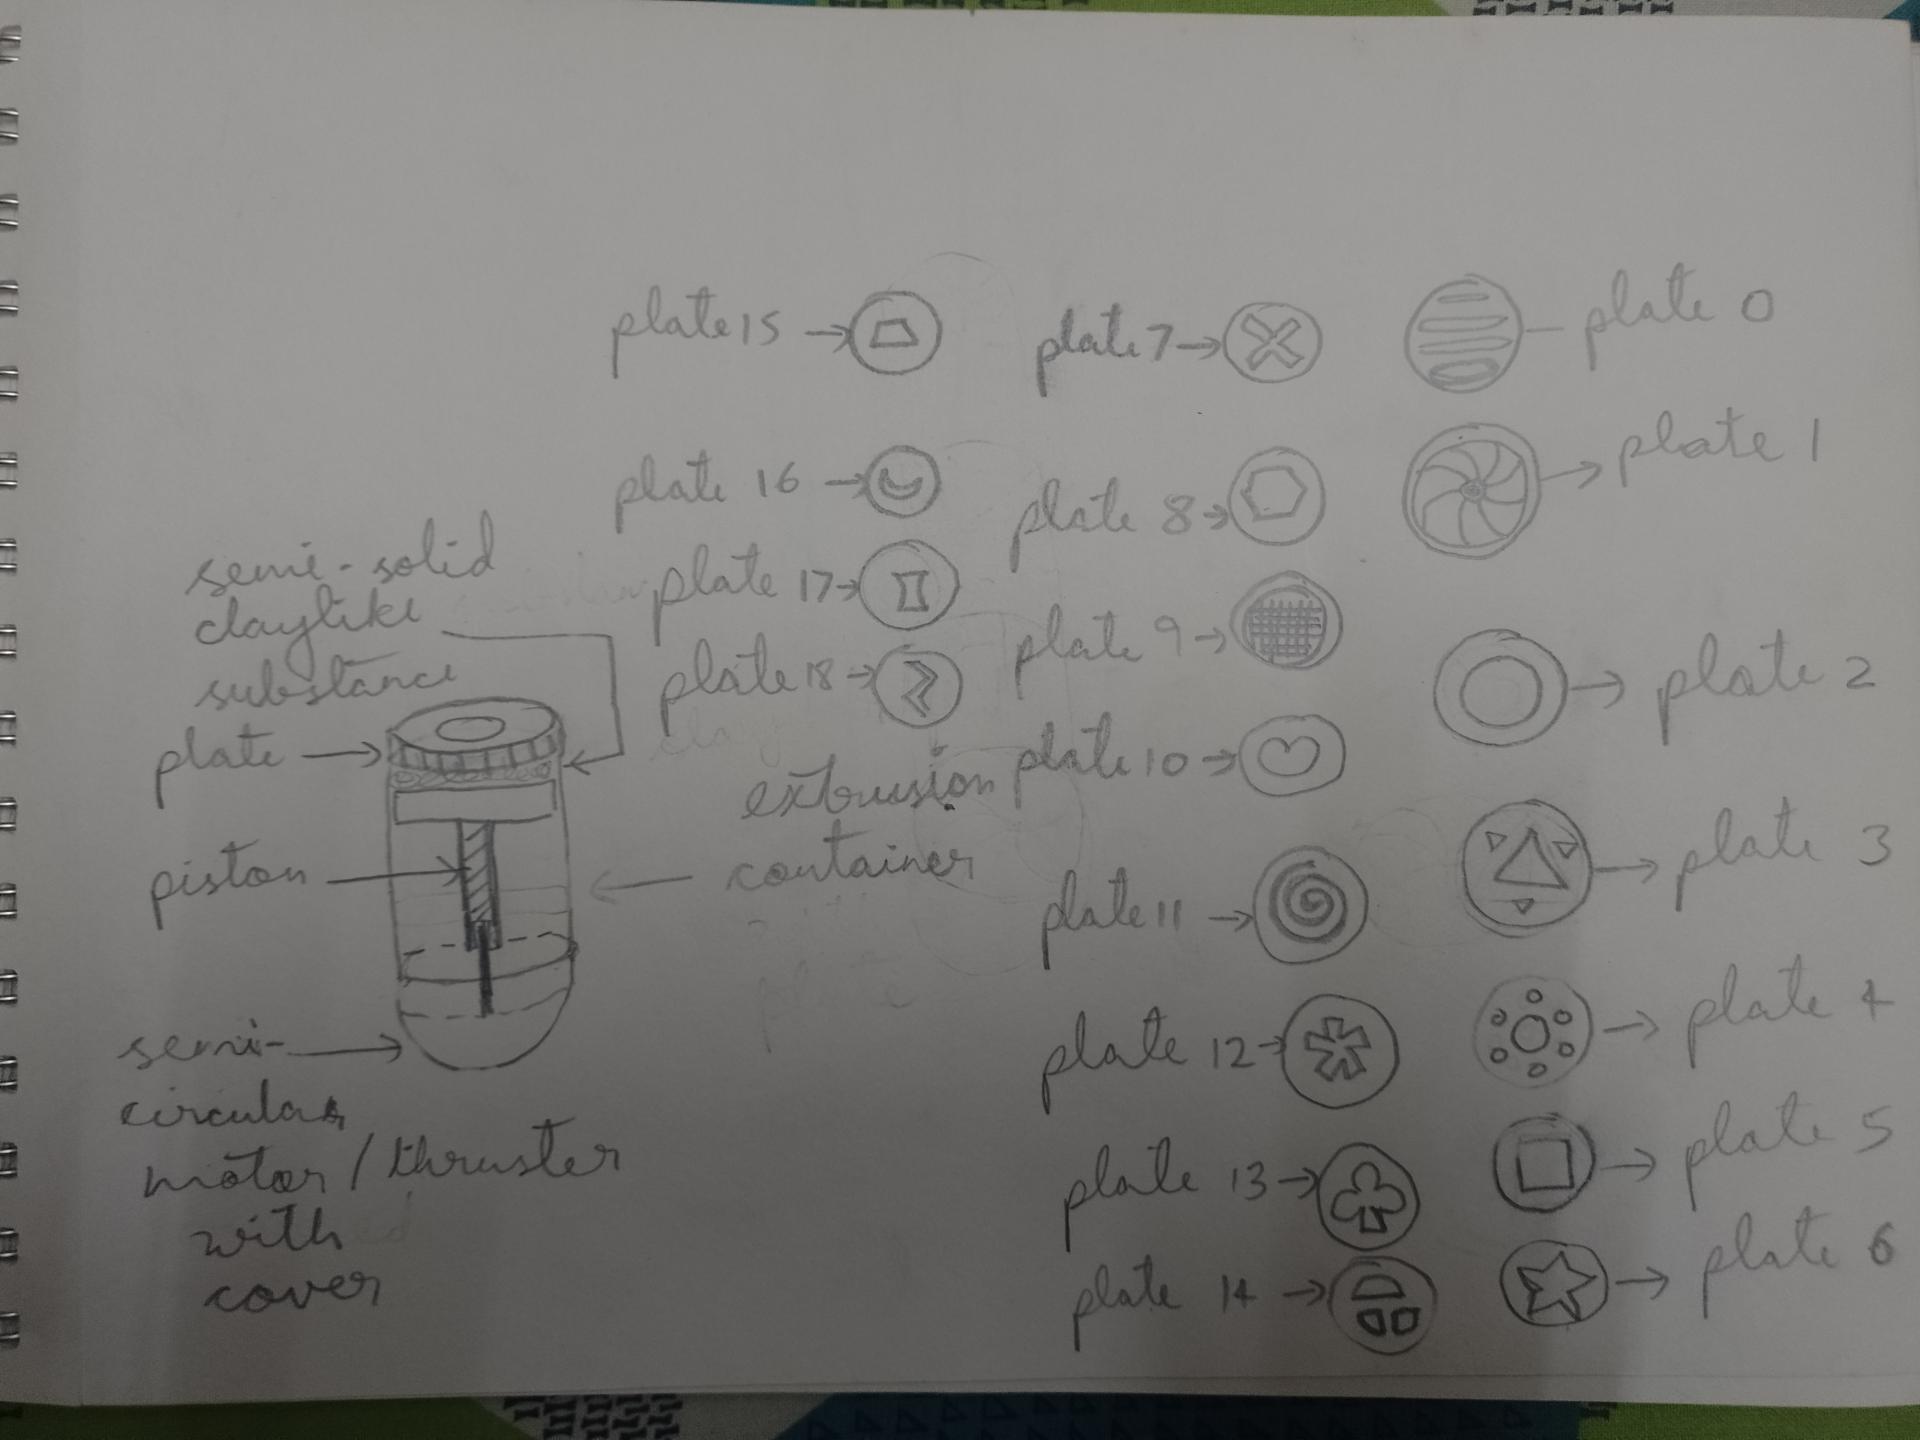 semi-solid
claylike
substance
plate
piston
semi-
circular
motor/thruster
with
cover
extrusion
container
plate 15
plate 16
plate 17
plate 18
plate 7
plate 8
plate 9
plate 10
plate 11
plate 12
plate 13
plate 14
plate 0
plate 1
plate 2
plate 3
plate 4
plate 5
plate 6